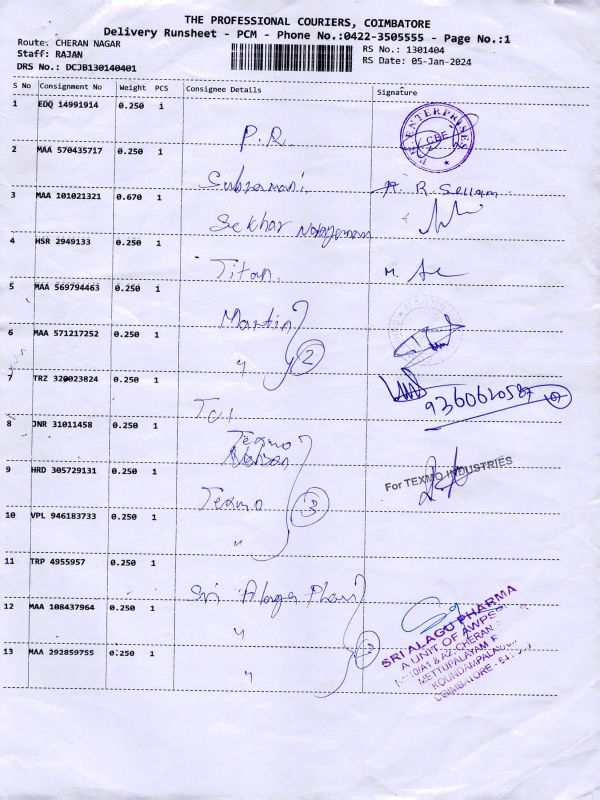 THE PROFESSIONAL COURIERS, COIMBATORE
Delivery Runsheet - PCM - Phone No.:0422-3505555 - Page No.:1
Route: CHERAN NAGAR
Staff: RAJAN
DRS No.: DCJB130140401
RS No.: 1301404
RS Date: 05-Jan-2024
S No Consignment No Weight PCS Consignee Details Signature
1 EDQ 14991914 0.250 1
P.R.
ENTERPRISES
CBE
2 MAA 570435717 0.250 1
Subramani R. Sellam
3 MAA 101021321 0.670 1
Sekhar
4 HSR 2949133 0.250 1
Titan M.
5 MAA 569794463 0.250 1
Martin
6 MAA 571217252 0.250 1
" 2
7 TRZ 320023824 0.250 1
9360620587
8 JNR 31011458 0.250 1
Texmo
9 HRD 305729131 0.250 1
For TEXMO INDUSTRIES
Texmo 3
10 VPL 946183733 0.250 1
"
11 TRP 4955957 0.250 1
Sri Alagu
12 MAA 108437964 0.250 1
"
13 MAA 292859755 0.250 1
"
SRI ALAGU PHARMA
A UNIT OF AWPS
10/A1 & A2, CHERAN
METTUPALAYAM R
KOUNDAMPALA
COIMBATORE - 641